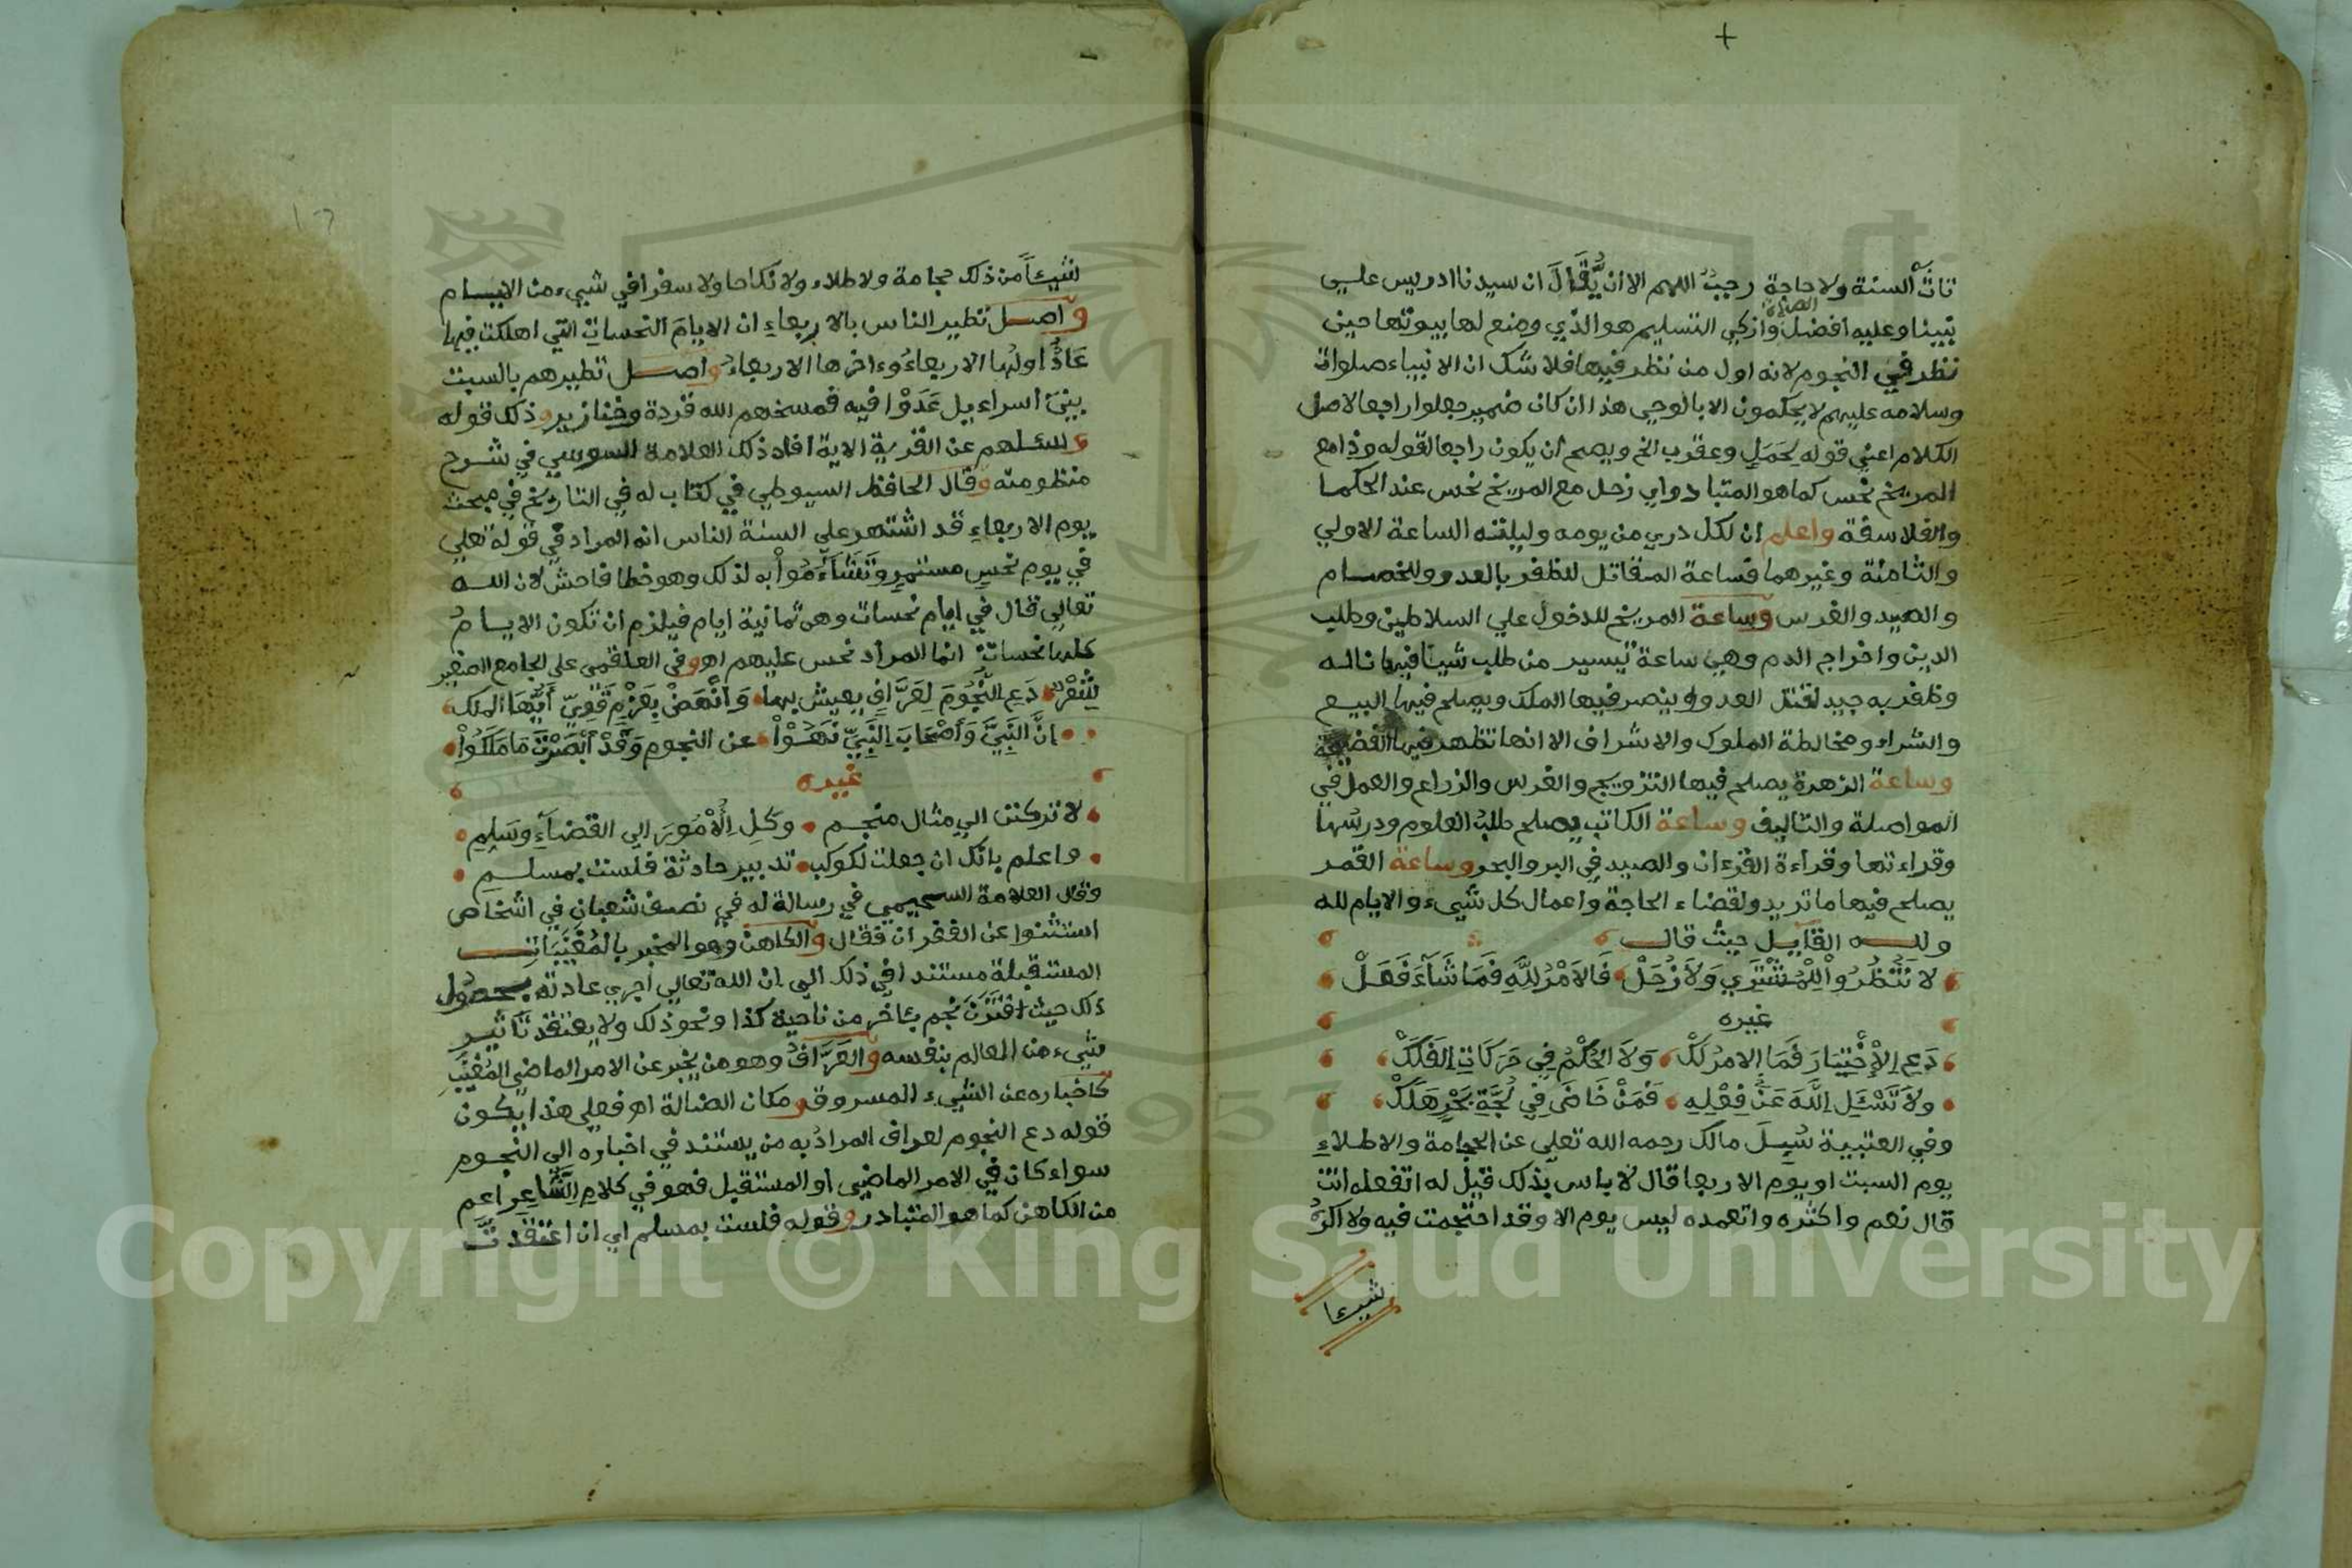 تات السنة ولا حاجة رجب اللهم الا ان يقال ان سيدنا ادريس علي
نبينا وعليه افضل الصلاة وازكي التسليم هو الذي وضع لها بيوتها حين
نظر في النجوم لانه اول من نظر فيها فلا شك ان الانبياء صلوات
وسلامه عليهم لا يحكمون الا بالوحي هذا ان كان ضمير جعلوا راجعا لاصل
الكلام اعني قوله لحمل وعقرب الخ ويصح ان يكون راجعا لقوله وذا مع
المريخ نحس كما هو المتبادر اي زحل مع المريخ نحس عند الحكما
والفلاسفة واعلم ان لكل دري من يومه وليلته الساعة الاولي
والثامنة وغيرهما فساعة المقاتل للظفر بالعدو وللخصام
والصيد والغرس وساعة المريخ للدخول علي السلاطين وطلب
الدين واخراج الدم وهي ساعة تيسير من طلب شيئا فيها ناله
وظفر به جيد لقتل العدو ينصر فيها الملك ويصلح فيها البيع
والشراء ومخالطة الملوك والاشراف الا انها تظهر فيها الفضيحة
وساعة الزهرة يصلح فيها التزويج والغرس والزراع والعمل في
المواصلة والتاليف وساعة الكاتب يصلح طلب العلوم ودرسها
وقراءتها وقراءة القرءان والصيد في البر والبحر وساعة القمر
يصلح فيها ما تريد ولقضاء الحاجة واعمال كل شيء والايام لله
ولله القايل حيث قال
لا تَنْظُرُوا لِلْمُشْتَرِي وَلاَ زُحَلْ فَالاَمْرُ لِلَّهِ فَمَا شَآءَ فَعَلْ
غيره
دَعِ الاِخْتِيَارَ فَمَا الامرُ لَكْ وَلاَ الحُكْمُ فِي حَرَكَاتِ الفَلَكْ
ولاَ تَسْئَلِ اللَّهَ عَنْ فِعْلِهِ فَمَنْ خَاضَ فِي لُجَّةِ بَحْرٍ هَلَكْ
وفي العتبية سُيِلَ مالك رحمه الله تعلي عن الحجامة والاطلاءِ
يوم السبت او يوم الاربعا قال لا باس بذلك قيل له اتفعله انت
قال نعم واكثره واتعمده ليس يوم الا وقد احتجمت فيه ولا اكره
شيءا
شيءاً من ذلك حجامة ولا طلاء ولا نكاحا ولا سفرا في شيء من الايام
واصل تطير الناس بالاربعاء ان الايام النحسات التي اهلكت فيها
عَادٌ اولها الاربعاء وءاخرها الاربعاء واصل تطيرهم بالسبت
بني اسراءيل عَدَوْا فيه فمسخهم الله قردة وخنازير وذلك قوله
وسئلهم عن القرية الاية افاد ذلك العلامة السوسي في شرح
منظومته وقال الحافظ السيوطي في كتاب له في التاريخ في مبحث
يوم الاربعاءِ قد اشتهر علي السنة الناس انه المراد في قوله تعلي
في يوم نحس مستمر وتَشَآءَمُوا به لذلك وهو خطا فاحش لان الله
تعالي قال في ايام نحسات وهي ثمانية ايام فيلزم ان تكون الايام
كلها نحسات انما المراد نحس عليهم اهـ وفي العلقمي علي الجامع الصغير
شِعْرٌ دَعِ النُّجُومَ لِعَرَّافٍ يعيش بها وَانْهَضْ بِعَزْمٍ قَوِيٍّ أَيُّهَا الملك
اِنَّ النَّبِيَّ وَأَصْحَابَ النَّبِيِّ نَهَوْا عن النجوم وَقَدْ أَبْصَرْتَ مَا مَلَكُوا
غيره
لا تركنن الي مثال منجم وكِلِ الأُمُورَ الي القضآءِ وسَلِّمِ
واعلم بانك ان جعلت لكوكب تدبير حادثة فلست بمسلم
وقال العلامة السحيمي في رسالة له في نصف شعبان في اشخاص
استثنوا عن الغفران فقال والكاهن وهو المخبر بالمُغَيَّبَات
المستقبلة مستندا في ذلك الي ان الله تعالي اجري عادته بحصول
ذلك حيث اقْتَرَنَ نجم بئاخر من ناحية كذا ونحو ذلك ولا يعتقد تَاثير
شيء من العالم بنفسه والعَرَّافُ وهو من يخبر عن الامر الماضي المُغَيَّبِ
كاخباره عن الشيء المسروق ومكان الضالة اهـ فعلي هذا يكون
قوله دع النجوم لعراف المراد به من يستند في اخباره الي النجوم
سواء كان في الامر الماضي او المستقبل فهو في كلام الشَّاعِرِ اعم
من الكاهن كما هو المتبادر وقوله فلست بمسلم اي ان اعتقدت
Copyright © King Saud University
1957